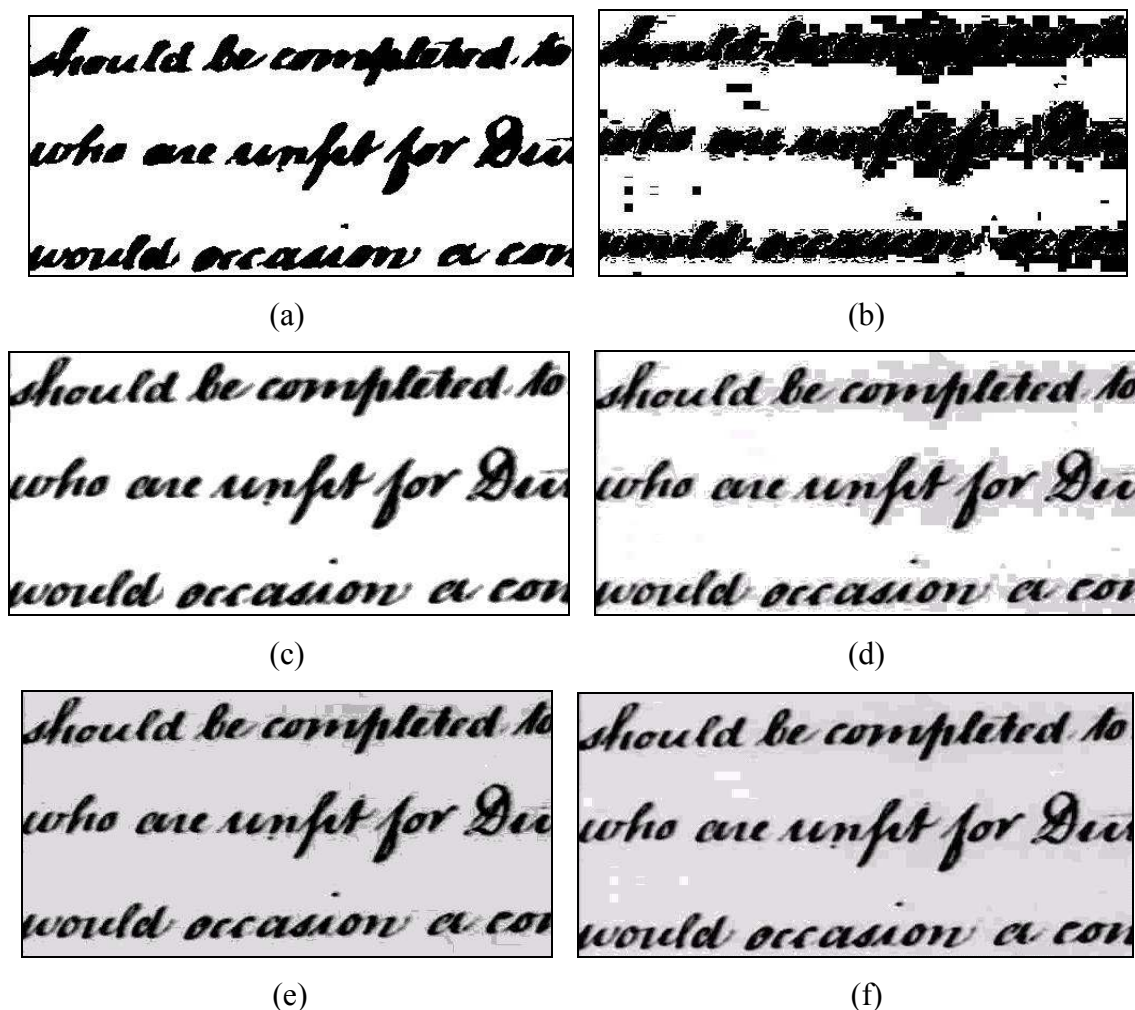 should be completed to
who are unfit for
would occasion a con
(a)
should be
who are unfit for
would occasion a con
(b)
should be completed to
who are unfit for
would occasion a con
(c)
should be completed to
who are unfit for
would occasion a con
(d)
should be completed to
who are unfit for
would occasion a con
(e)
should be completed to
who are unfit for
would occasion a con
(f)